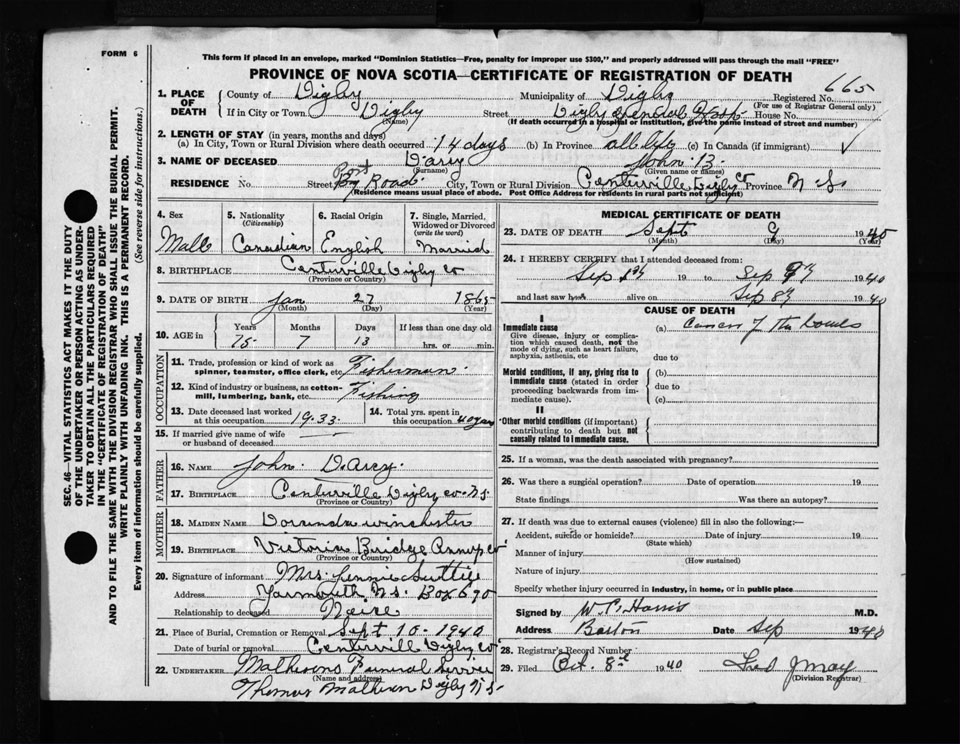 FORM 6
This form if placed in an envelope, marked "Dominion Statistics—Free, penalty for improper use $300," and properly addressed will pass through the mail "FREE"
PROVINCE OF NOVA SCOTIA—CERTIFICATE OF REGISTRATION OF DEATH
SEC. 46—VITAL STATISTICS ACT MAKES IT THE DUTY
OF THE UNDERTAKER OR PERSON ACTING AS UNDER-
TAKER TO OBTAIN ALL THE PARTICULARS REQUIRED
IN THE "CERTIFICATE OF REGISTRATION OF DEATH"
AND TO FILE THE SAME WITH THE DIVISION REGISTRAR WHO SHALL ISSUE THE BURIAL PERMIT.
WRITE PLAINLY WITH UNFADING INK. THIS IS A PERMANENT RECORD.
Every item of information should be carefully supplied. (See reverse side for instructions.)
1. PLACE OF DEATH
County of Digby Municipality of Digby Registered No. 665
(For use of Registrar General only)
If in City or Town Digby Street Digby General Hosp House No.
(Name) (If death occurred in a hospital or institution, give the name instead of street and number)
2. LENGTH OF STAY (in years, months and days)
(a) In City, Town or Rural Division where death occurred 14 days (b) In Province all life (c) In Canada (if immigrant)
3. NAME OF DECEASED D'arcy John B.
(Surname) (Given name or names)
RESIDENCE No. Street Road City, Town or Rural Division Centerville Digby Co Province N S
(Residence means usual place of abode. Post Office Address for residents in rural parts not sufficient)
4. Sex
Male
5. Nationality
(Citizenship)
Canadian
6. Racial Origin
English
7. Single, Married,
Widowed or Divorced
(write the word)
Married
8. BIRTHPLACE Centerville Digby Co
(Province or Country)
9. DATE OF BIRTH Jan 27 1865
(Month) (Day) (Year)
10. AGE in
Years Months Days If less than one day old
75 7 13 hrs. or min.
OCCUPATION
11. Trade, profession or kind of work as
spinner, teamster, office clerk, etc Fisherman
12. Kind of industry or business, as cotton-
mill, lumbering, bank, etc. Fishing
13. Date deceased last worked
at this occupation 1933
14. Total yrs. spent in
this occupation 40 years
15. If married give name of wife
or husband of deceased
FATHER
16. NAME John D'Arcy
17. BIRTHPLACE Centerville Digby Co. N.S.
(Province or Country)
MOTHER
18. MAIDEN NAME Dorinda Winchester
19. BIRTHPLACE Victoria Bridge Annap Co
(Province or Country)
20. Signature of informant Mrs. Jennie
Address Yarmouth N.S. Box 690
Relationship to deceased Neice
21. Place of Burial, Cremation or Removal Sept 10 - 1940
Date of burial or removal Centerville Digby Co
22. UNDERTAKER Mathesons Funeral Service
(Name and address)
Thomas Matheson Digby N.S.
MEDICAL CERTIFICATE OF DEATH
23. DATE OF DEATH Sept 9 1940
(Month) (Day) (Year)
24. I HEREBY CERTIFY that I attended deceased from:
Sep 1st 19 to Sep 9th 1940
and last saw him alive on Sep 8th 1940
CAUSE OF DEATH
I
Immediate cause
Give disease, injury or complica-
tion which caused death, not the
mode of dying, such as heart failure,
asphyxia, asthenia, etc
(a) Cancer of the bowels
due to
Morbid conditions, if any, giving rise to
immediate cause (stated in order
proceeding backwards from im-
mediate cause).
(b)
due to
(c)
II
Other morbid conditions (if important)
contributing to death but not
causally related to immediate cause.
25. If a woman, was the death associated with pregnancy?
26. Was there a surgical operation? Date of operation 19
State findings Was there an autopsy?
27. If death was due to external causes (violence) fill in also the following:—
Accident, suicide or homicide? Date of injury 19
(State which)
Manner of injury
(How sustained)
Nature of injury
Specify whether injury occurred in industry, in home, or in public place
Signed by W. C. Harris M.D.
Address Barton Date Sep 1940
28. Registrar's Record Number
29. Filed Oct. 8th 1940 May
(Division Registrar)